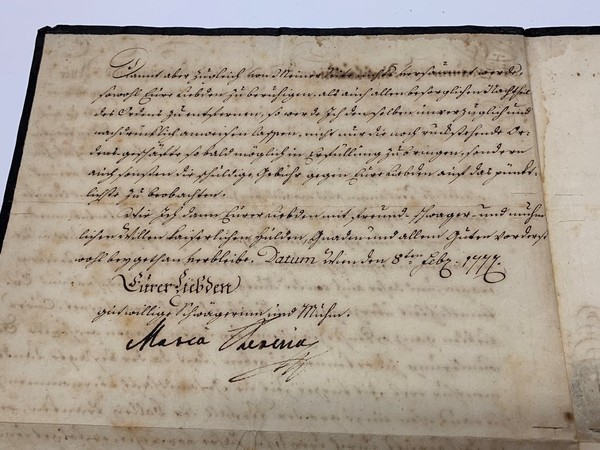 Damit aber zugleich von Meiner Seite nichts versäumet werde,
sowohl Eure Liebden zu beruhigen, als auch allen besorglichen Nachtheil
des Ordens zu entfernen, so werde Ich denselben unverzüglich und
nachdrücklich anweisen lassen, nicht nur die noch rückstehende Or-
densgeschäfte sobald möglich in Erfüllung zu bringen, sondern
auch sonsten die schuldige Gebühr gegen Eure Liebden auf das pünkt-
lichste zu beobachten.
Wie Ich dann Eurer Liebden mit Freund- schwager- und muhm-
lichen Willen, Kaiserlichen Hulden, Gnaden und allem Guten vorderst
wohl beygethan verbleibe. Datum Wien den 8ten Febr. 1777.
Eurer Liebden
gutwillige Schwägerinn und Muhm.
Maria Theresia